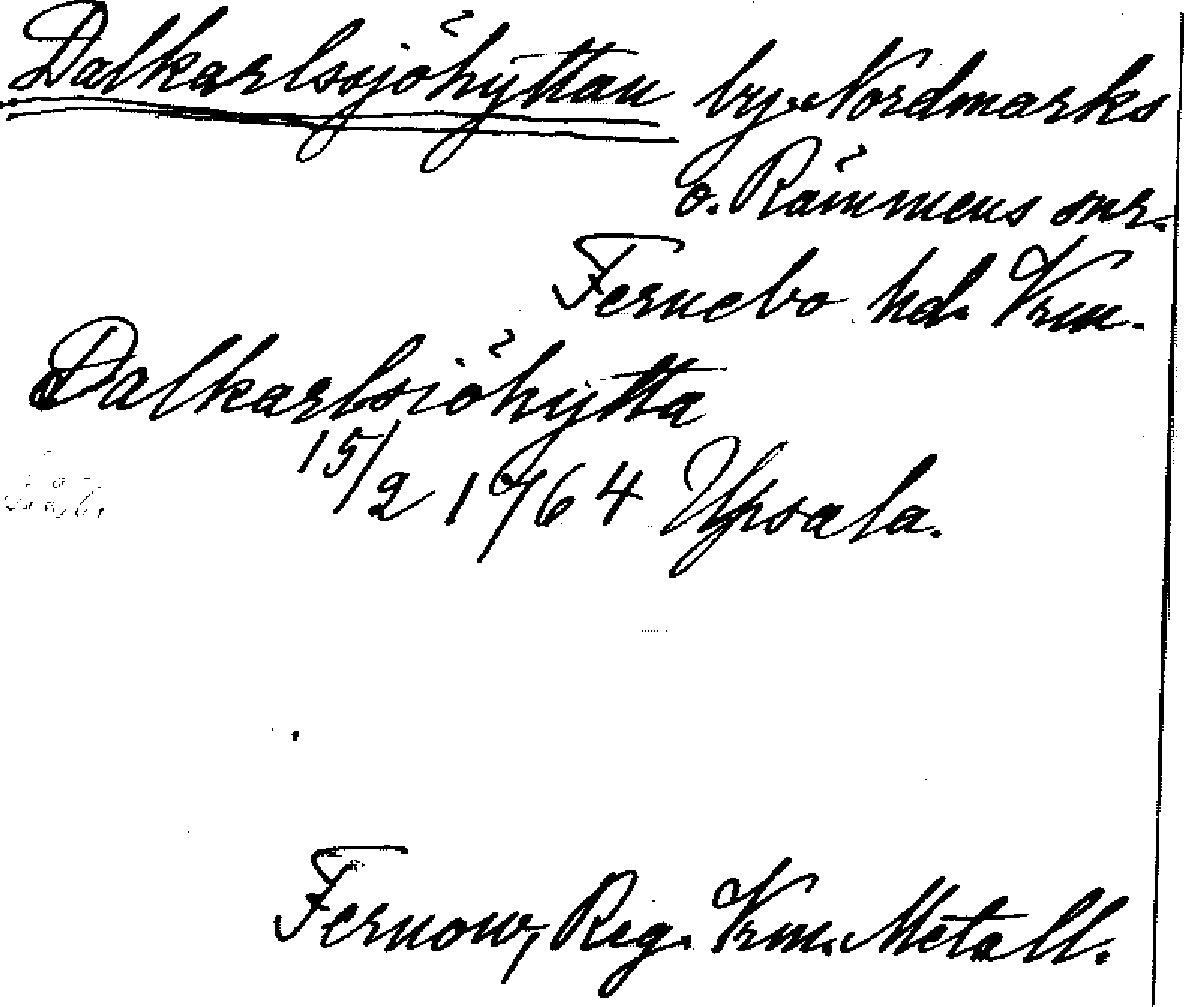 Dalkarlssjöhyttan by Nordmarks
o. Rämmens snr.
Fernebo hd. Vrm.
Dalkarlsiöhytta
15/2 1764 Upsala.
Fernow, Reg. Vrm. Metall.